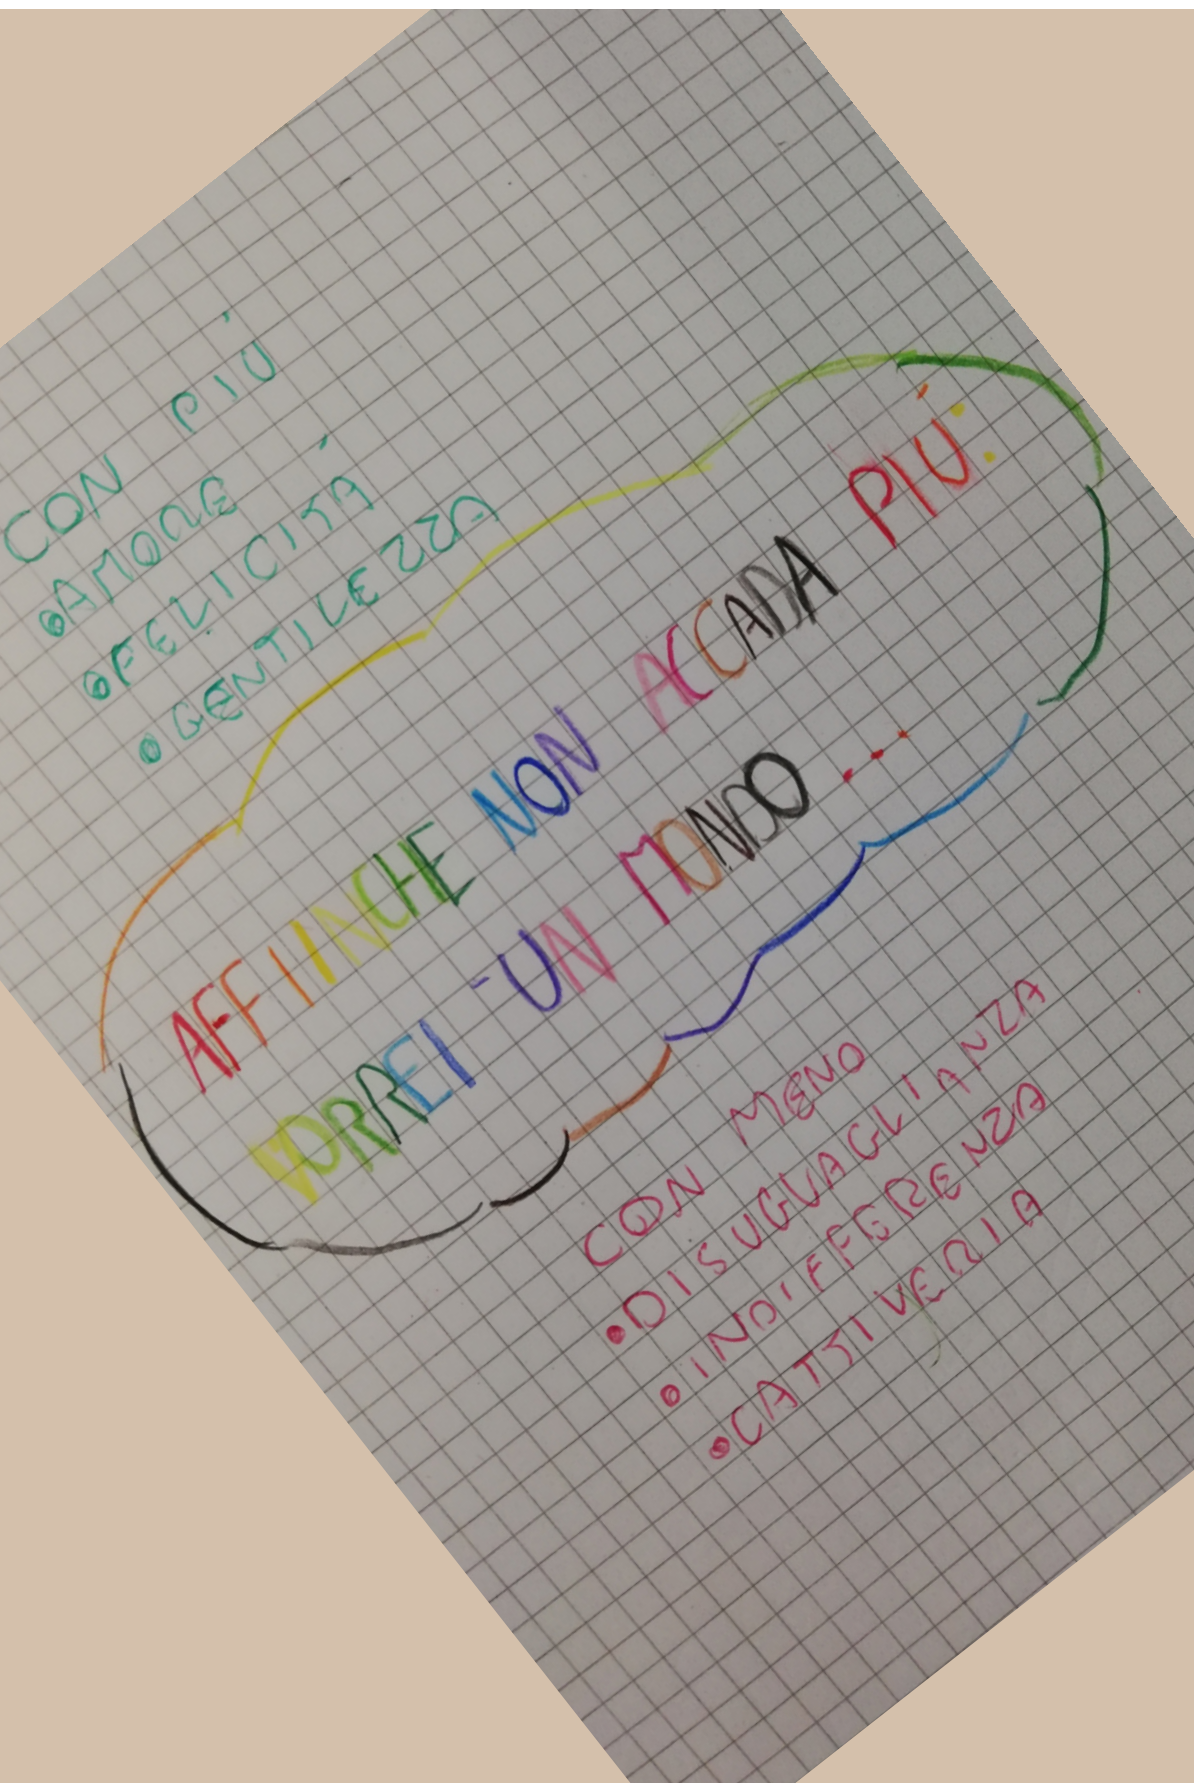 CON PIÚ
•AMORE
•FELICITÁ
•GENTILEZZA
AFFIINCHE NON ACCADA PIÚ:
VORREI -UN MONDO ...
CON MENO
•DISUGUAGLIANZA
•INDIFFERENZA
•CATTIVERIA